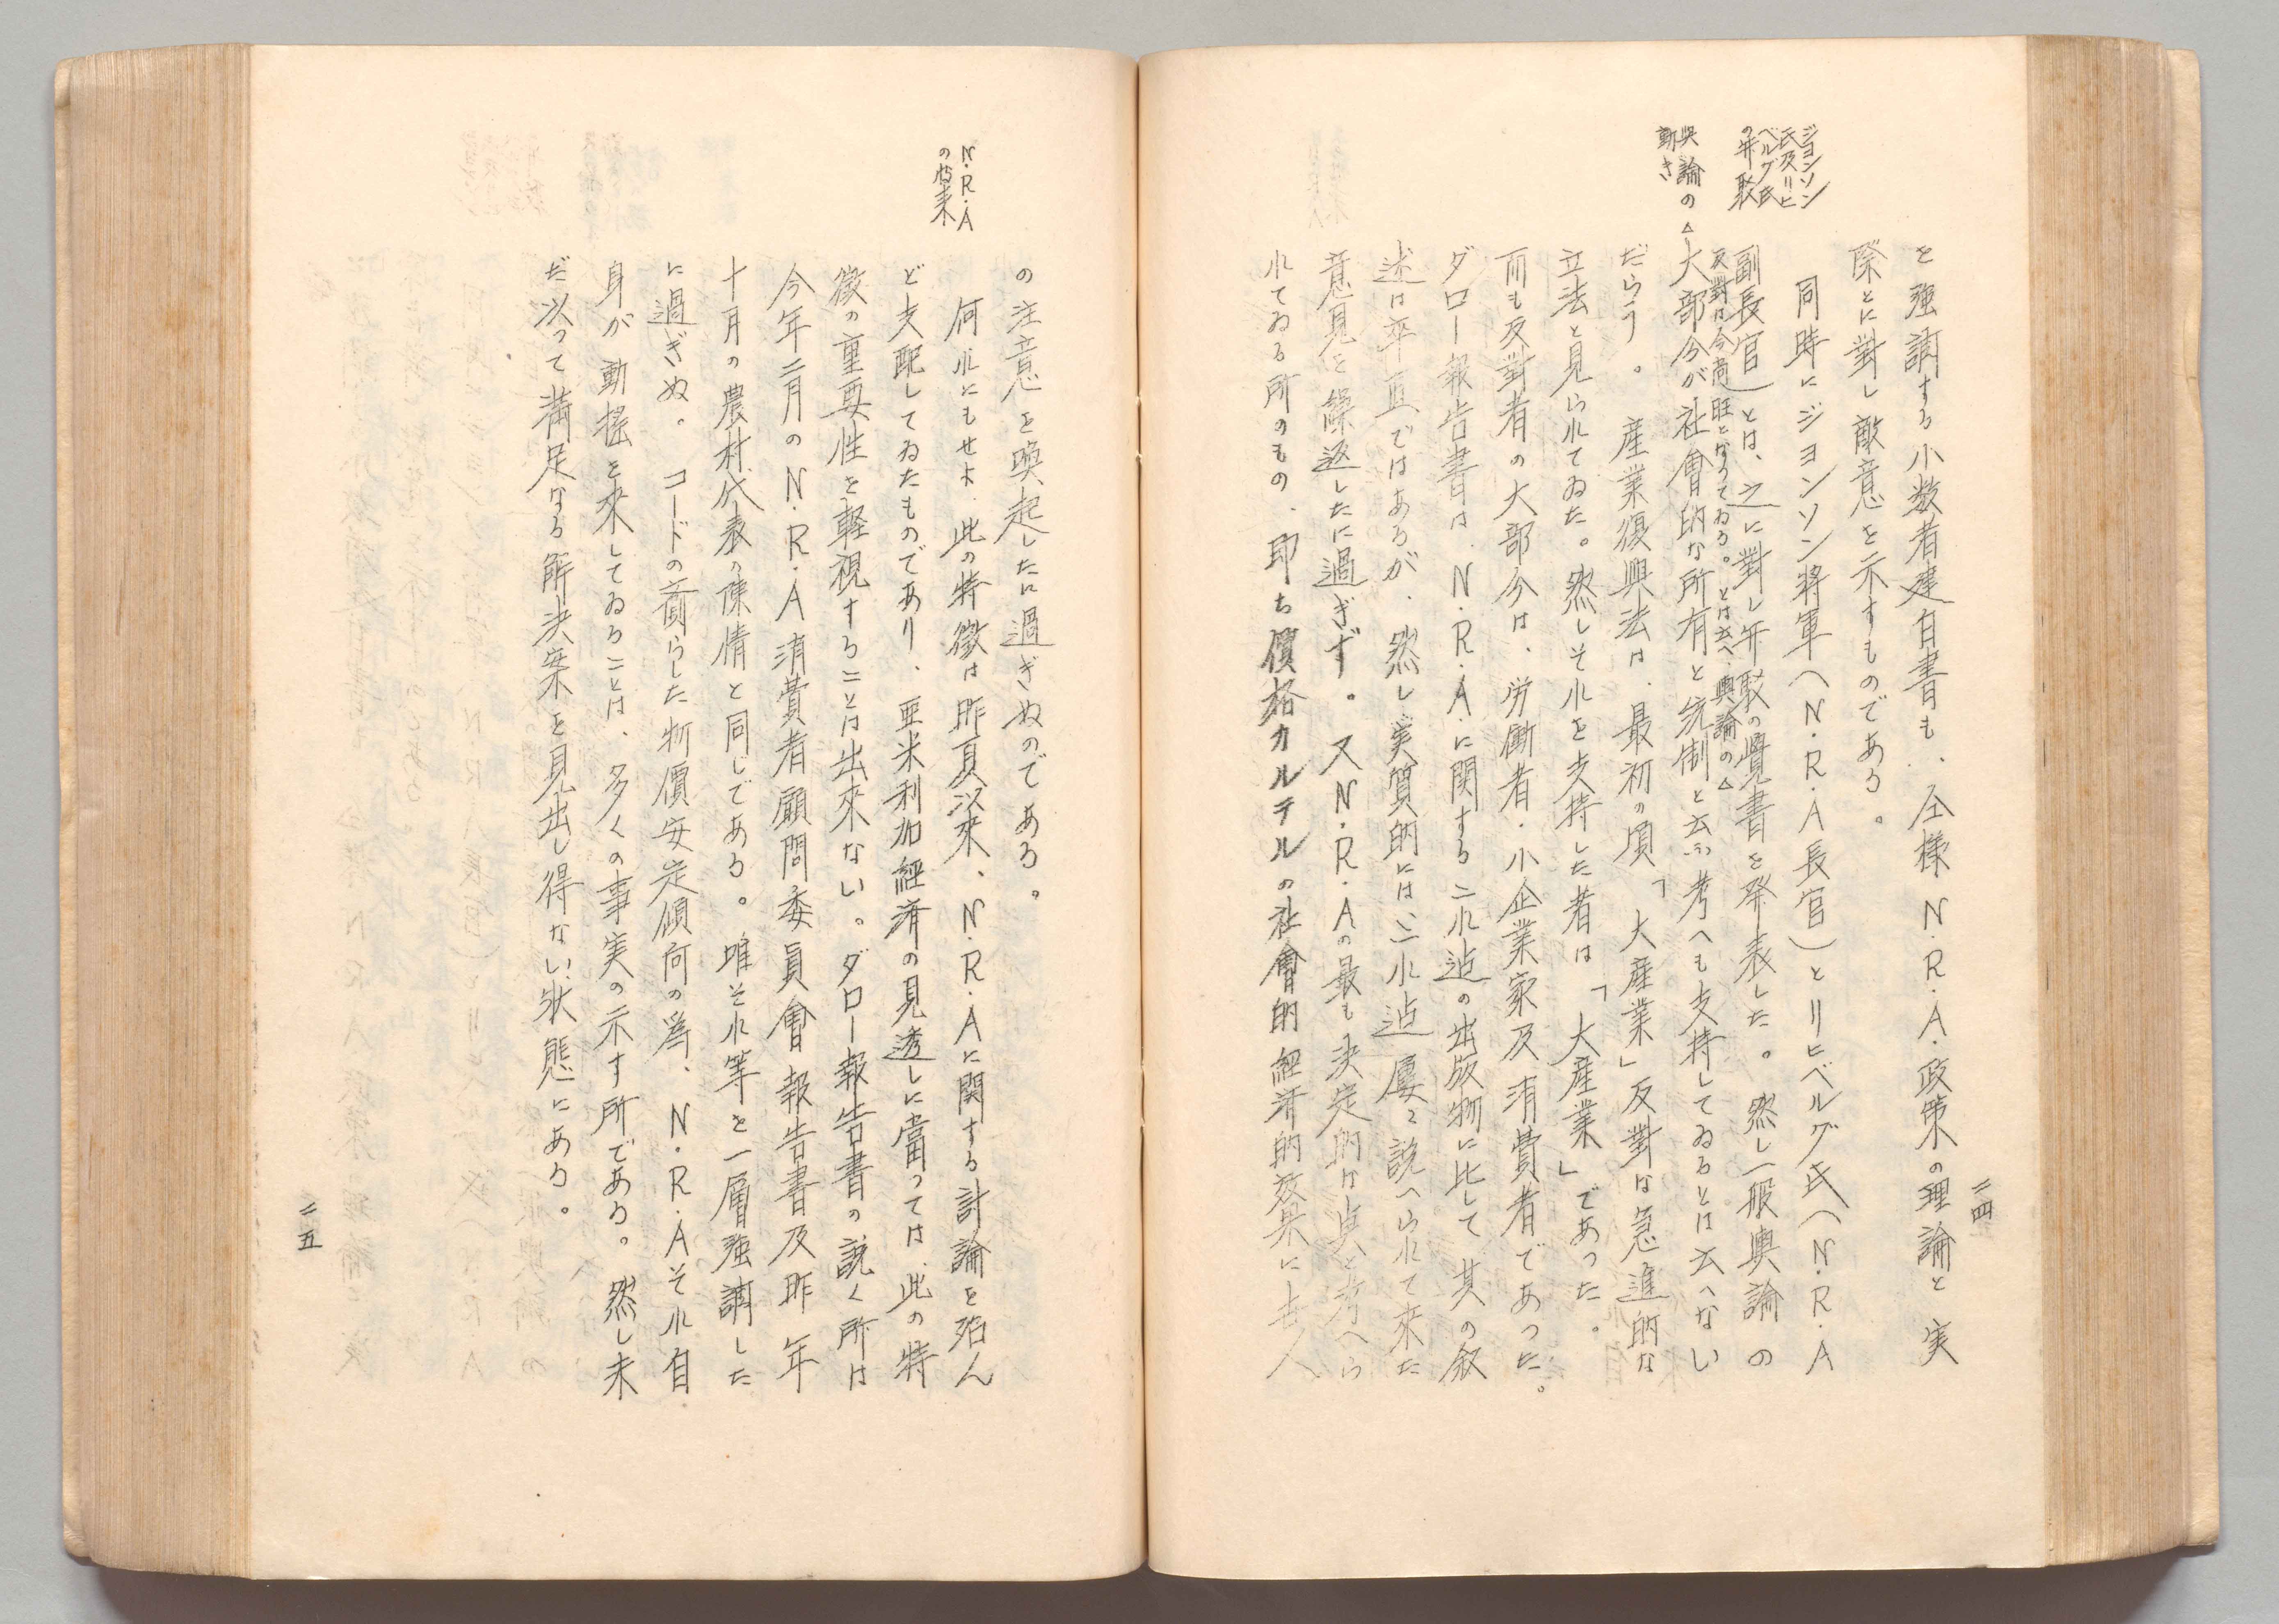 を強調する小数者建白書も、仝様N.R.A.政策の理論と実
際とに對し敵意を示すものである。
ジヨンソン
氏及リヒ
ベルグ氏
の弁駁
同時にジヨンソン將軍（N.R.A長官）とリヒベルグ氏（N.R.A
副長官）とは、之に對し弁駁の覺書を発表した。然し一般輿論の
反對は今尚旺となつてゐる。とは云へ、輿論の△
輿論の
動き
△大部分が社會的な所有と統制と云ふ考へも支持してゐるとは云へない
だらう。産業復興法は、最初の項、「大産業」反對な急進的な
立法と見られてゐた。然しそれを支持した者は「大産業」であつた。
而も反對者の大部分は、労働者・小企業家及消費者であつた。
ダロー報告書は、N.R.A.に関するこれ迠の出版物に比して其の叙
述は卒直ではあるが、然し実質的にはこれ迠屢々説へられて来た
意見を繰返したに過ぎず。又N.R.A.の最も決定的な点と考へら
れてゐる所のもの、即ち價格カルテルの社會的経済的效果に吉人
二四
の注意を喚起したに過ぎぬのである。
N.R.A
の將来
何れにもせよ、此の特徴は昨夏以來、N.R.Aに関する討論を殆ん
ど支配してゐたものであり、亜米利加経済の見透しに當つては、此の特
徴の重要性を軽視することは出來ない。ダロー報告書の説く所は
今年二月のN.R.A消費者顧問委員會報告書及昨年
十月の農村代表の陳情と同じである。唯それ等を一層強調した
に過ぎぬ。コードの齎らした物價安定傾向の爲、N.R.Aそれ自
身が動揺を來してゐることは、多くの事実の示す所である。然し未
だ以つて満足なる解決案を見出し得ない状態にある。
二五